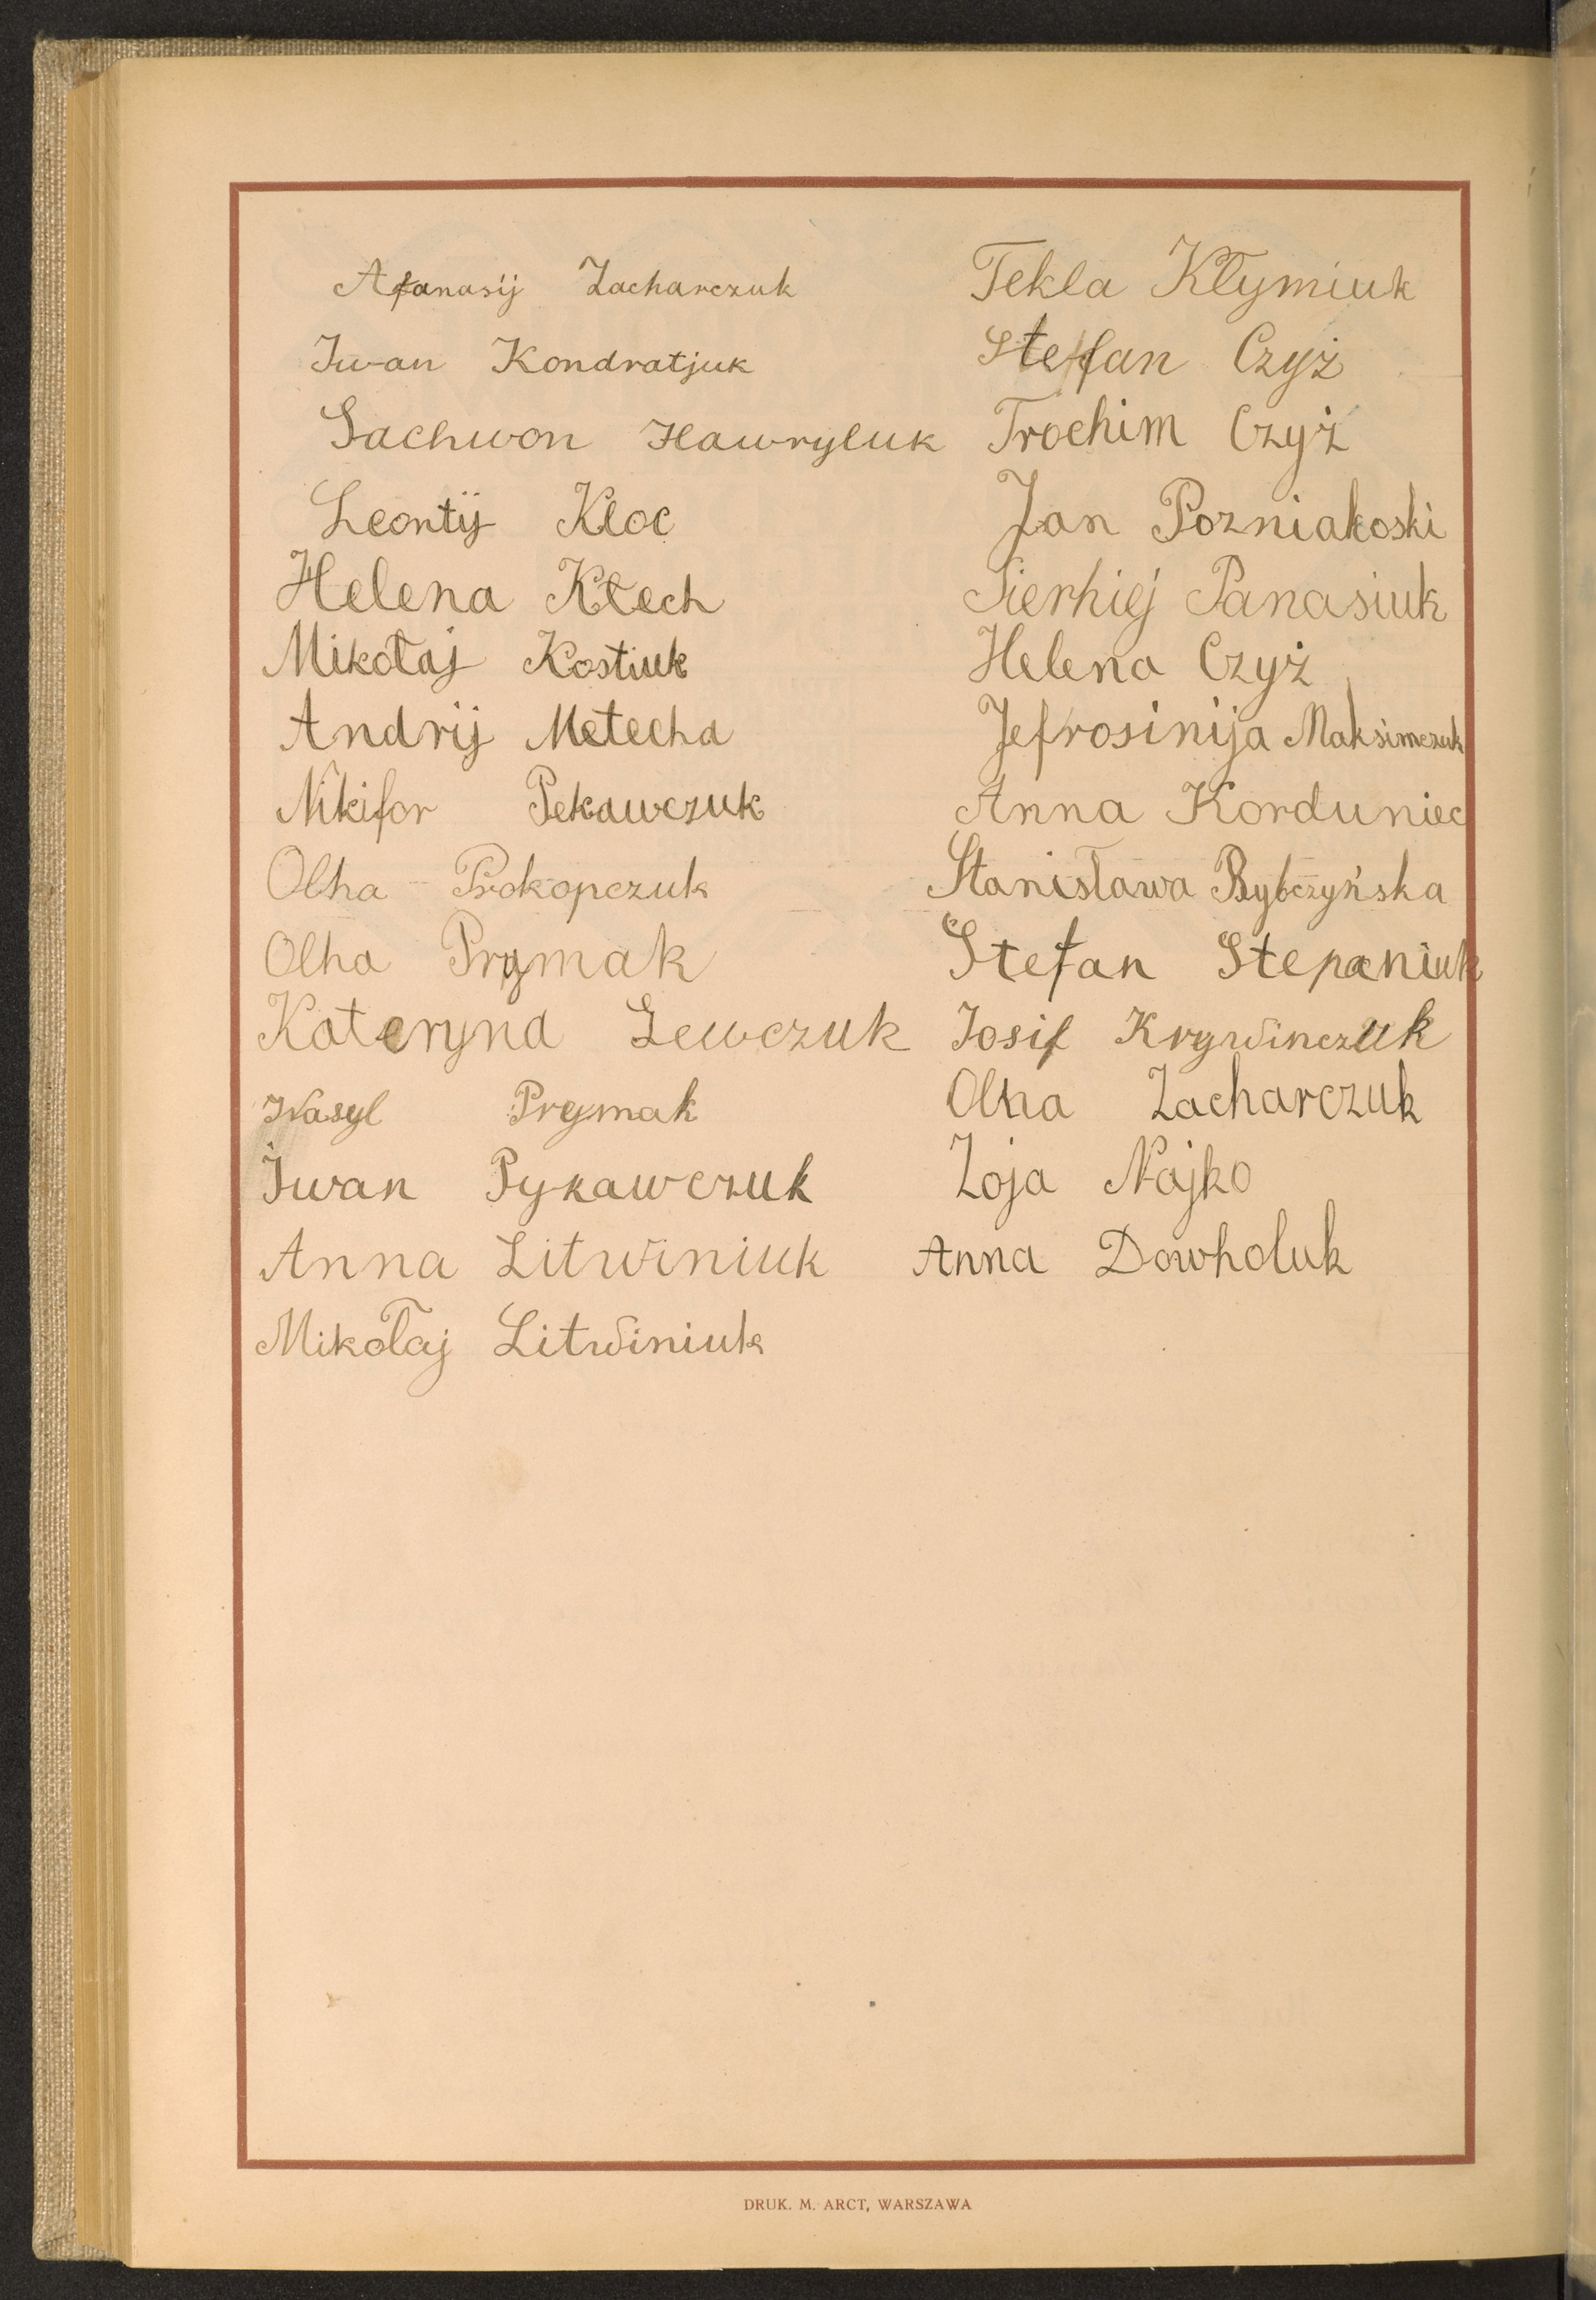 Afanasij Zacharczuk
Iwan Kondratjuk
Sachwon Hawryluk
Leontij Kloc
Helena Klech
Mikołaj Kostiuk
Andrij Metecha
Nikifor Pekawczuk
Olha Prokopczuk
Olha Prymak
Kateryna Lewczuk
Wasyl Prymak
Iwan Pykawczuk
Anna Litwiniuk
Mikołaj Litwiniuk
Tekla Kłymiuk
Steffan Czyż
Trochim Czyż
Jan Pozniakoski
Sierhiej Panasiuk
Helena Czyż
Jefrosinija Maksimczuk
Anna Korduniec
Stanisława Rybczyńska
Stefan Stepaniuk
Iosif Krywinczuk
Olha Zacharczuk
Zoja Najko
Anna Dowholuk
DRUK. M. ARCT, WARSZAWA